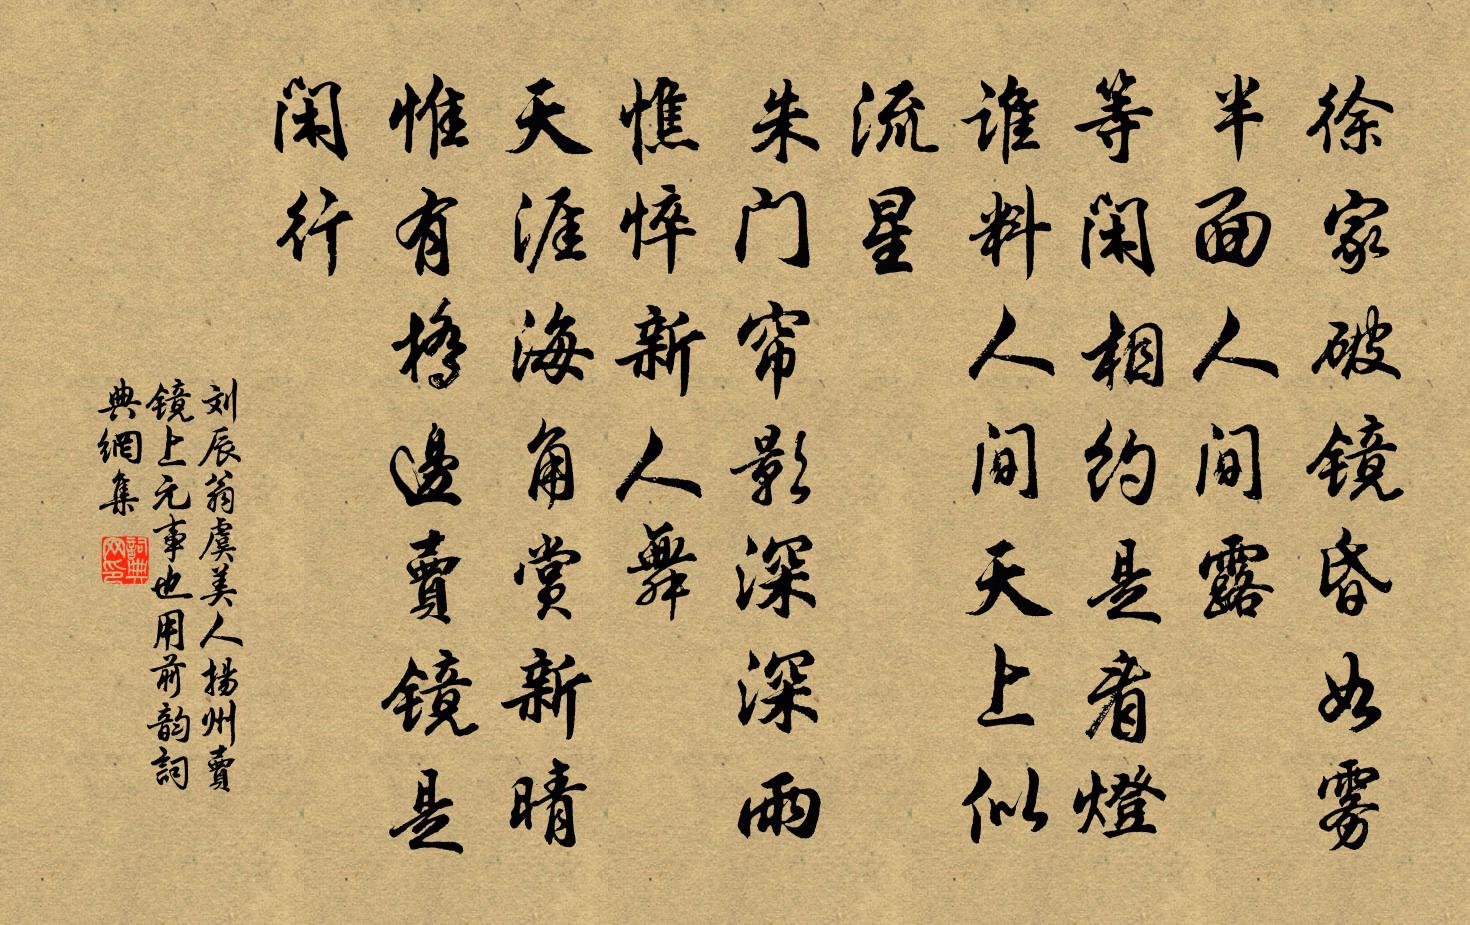 徐家破镜昏如雾
半面人间露
等闲相约是看燈
谁料人间天上似
流星
朱门帘影深深雨
憔悴新人舞
天涯海角赏新晴
惟有橋邊賣镜是
闲行
刘辰翁虞美人揚州賣
镜上元事也用前韵詞
典網集
詞典網印